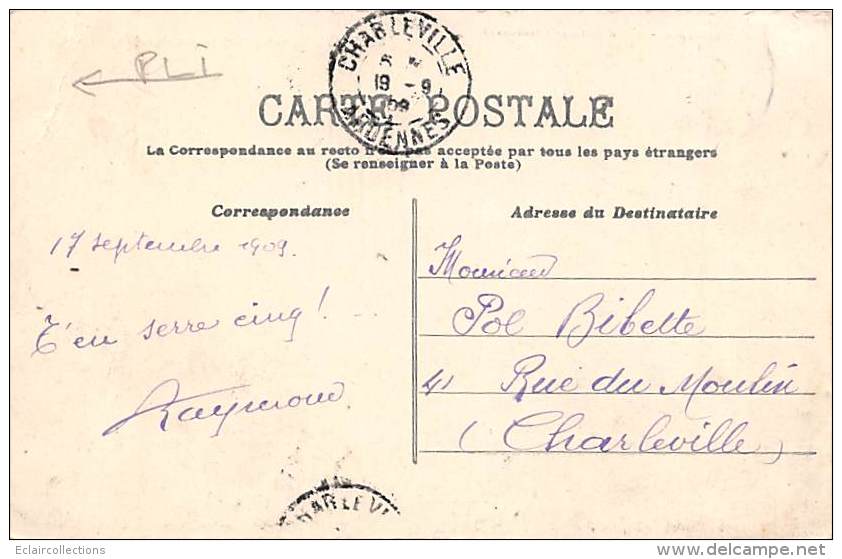 PLI
CHARLEVILLE
19 - 9
09
ARDENNES
CARTE POSTALE
La Correspondance au recto n'est pas acceptée par tous les pays étrangers
(Se renseigner à la Poste)
Correspondance
Adresse du Destinataire
17 septembre 1909.
T'en serre cinq! ...
Raymond
Monsieur
Pol Bibette
41 Rue du Moulin
(Charleville)
HARLEVI
Eclaircollections
delcampe.net